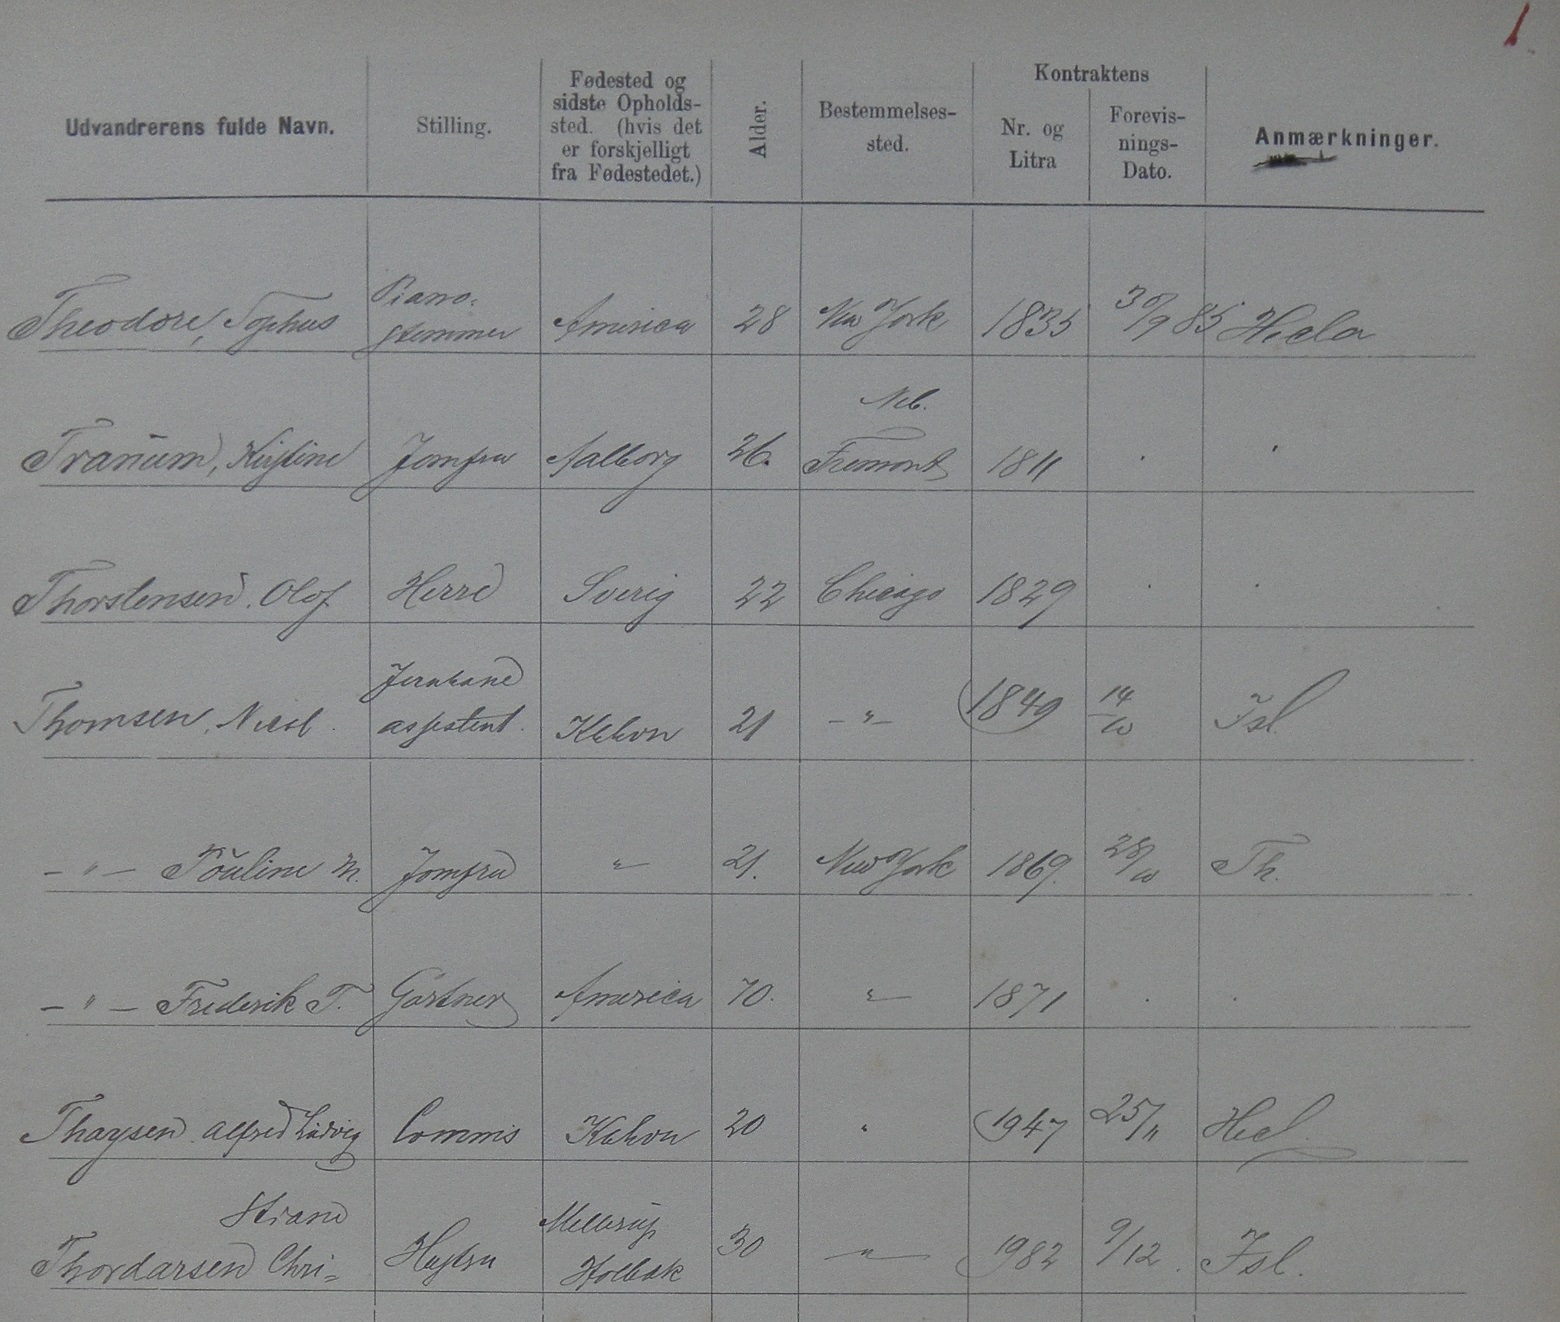 1
Udvandrerens fulde Navn. Stilling. Fødested og sidste Opholds-sted. (hvis det er forskjelligt fra Fødestedet.) Alder. Bestemmelses-sted. Kontraktens Nr. og Litra Forevis-nings-Dato. Anmærkninger.
Theodore, Sophus Piano-stemmer America 28 New York 1835 30/9 85 Hecla
Neb.
Tranum, Kirstine Jomfru Aalborg 26. Fremont 1811 " "
Thorstensen, Olof Herre Sverig 22 Chicago 1829 " "
Jernbane
Thomsen, assistent. Kbhvn 21 – " – 1849 14/10 Isl.
– " – Pouline M. Jomfru " 21. New York 1869. 28/10 Th.
– " – Frederik T. Gartner America 70. " 1871 " "
Thaysen Alfred Ludvig Commis Kbhvn 20 " 1947 25/11 Hecl.
stiane
Thordarsen Chri= Hustru Holbæk 30 " 1982 9/12. Isl.